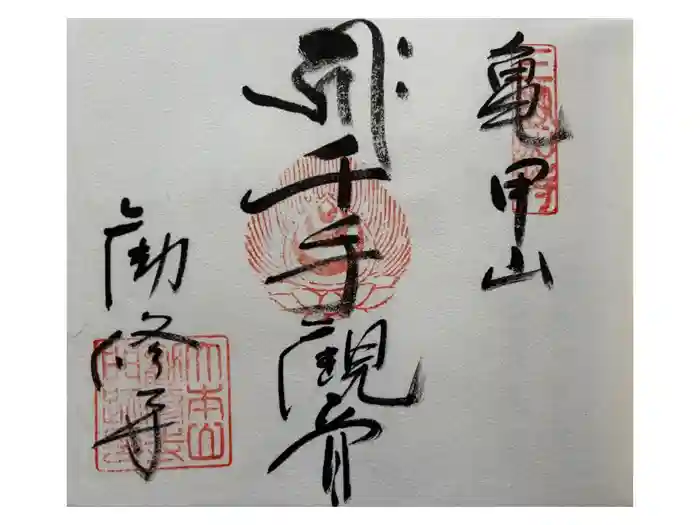 亀甲山
ह्रीः
千手観音
勧修寺